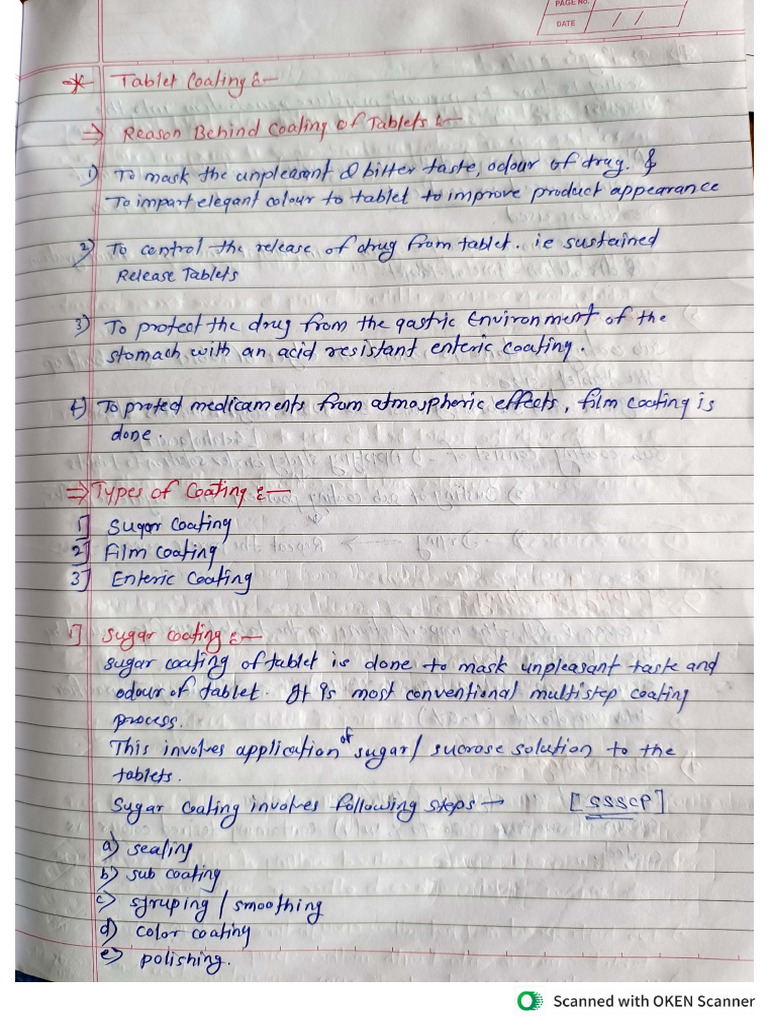 PAGE No.
DATE / /
* Tablet Coating :-
⇒ Reason Behind Coating of Tablets :-
1) To mask the unpleasant & bitter taste, odour of drug. &
To impart elegant colour to tablet to improve product appearance
2) To control the release of drug from tablet. ie sustained
Release Tablets
3) To protect the drug from the gastric Environment of the
stomach with an acid resistant enteric coating.
4) To protect medicaments from atmospheric effects, film coating is
done.
⇒ Types of Coating :-
1] Sugar Coating
2] Film coating
3] Enteric Coating
1] Sugar coating :-
sugar coating of tablet is done to mask unpleasant taste and
odour of tablet. It is most conventional multistep coating
process.
This involves application of sugar / sucrose solution to the
tablets.
Sugar coating involves following steps → [SSSCP]
a) sealing
b) sub coating
c) syruping / smoothing
d) color coating
e) polishing.
Scanned with OKEN Scanner